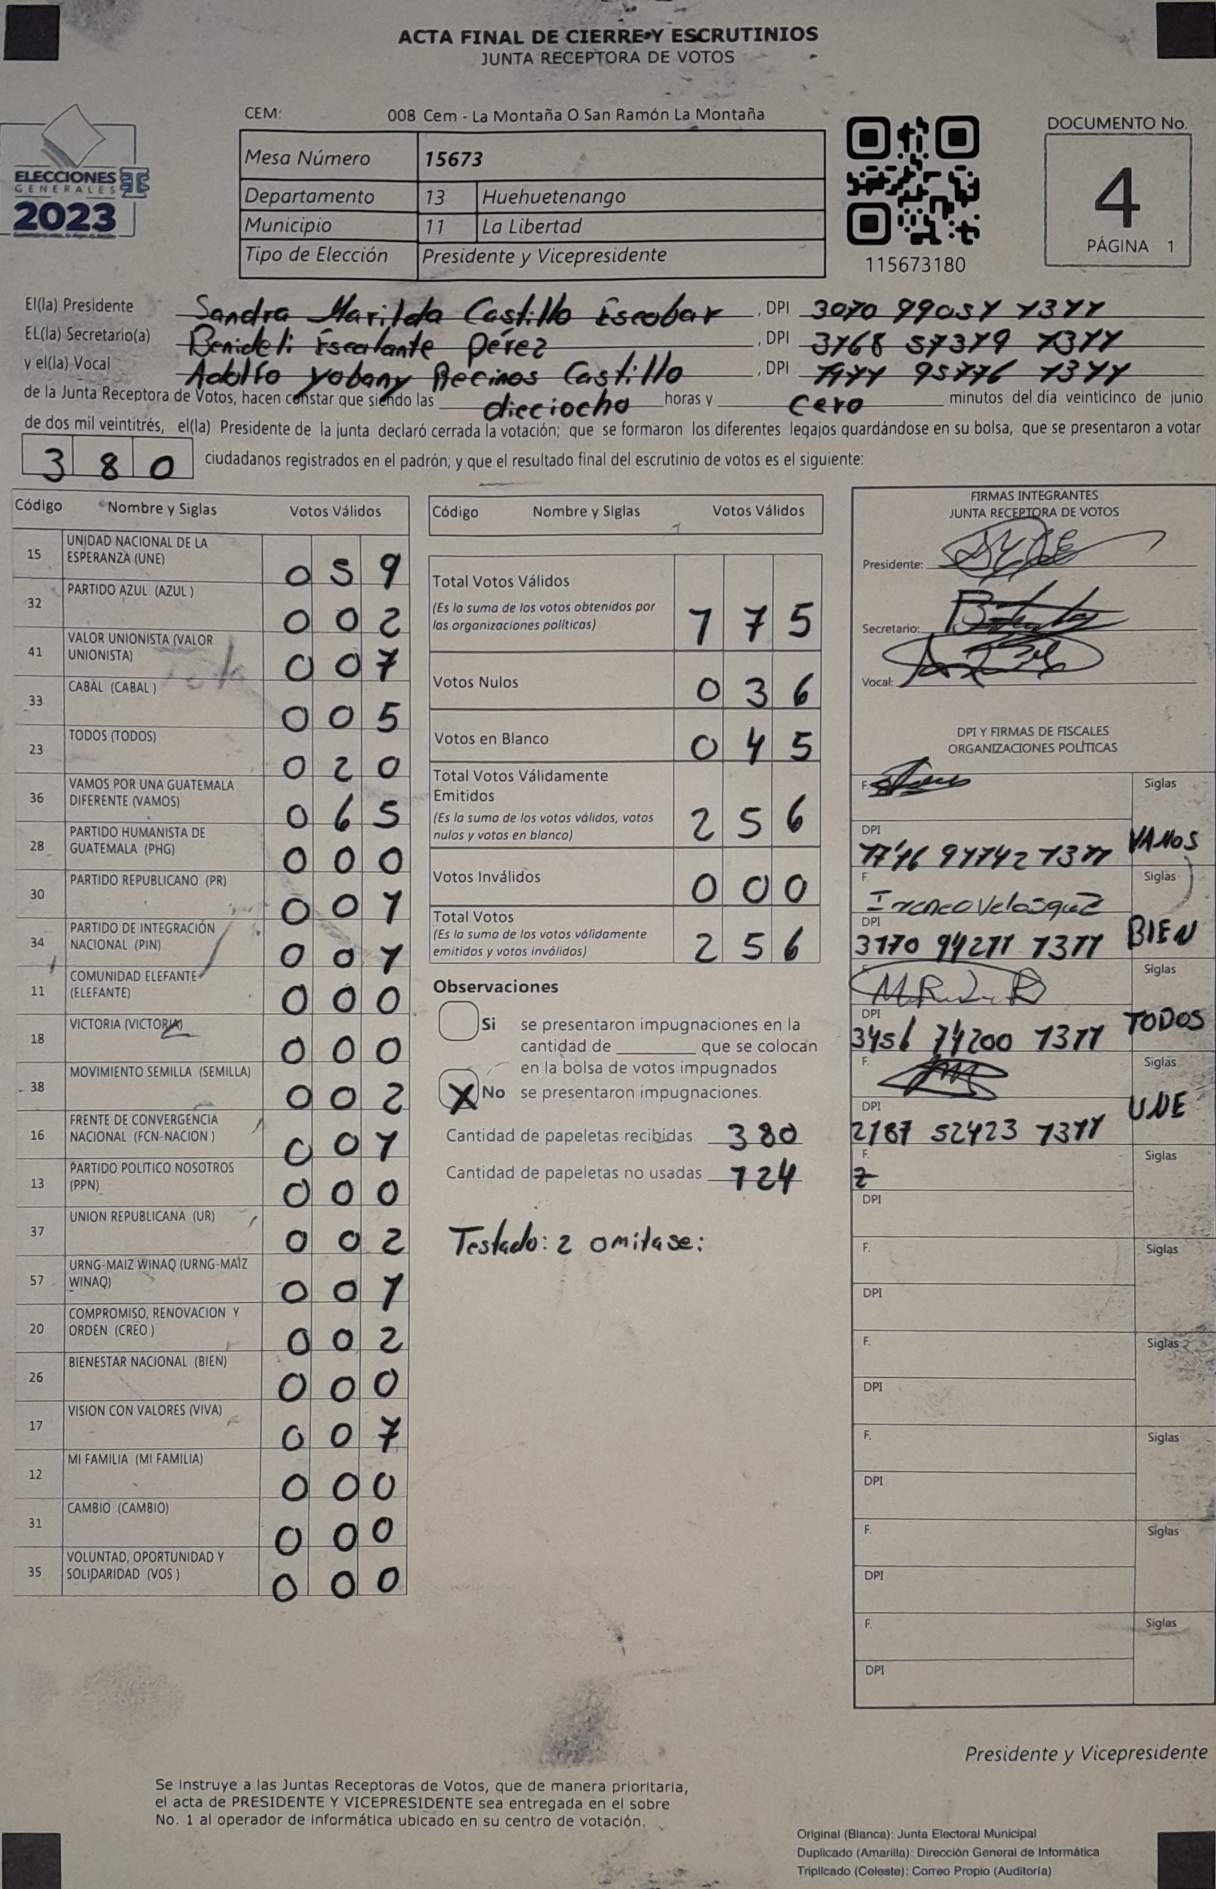 ACTA FINAL DE CIERRE Y ESCRUTINIOS
JUNTA RECEPTORA DE VOTOS
CEM: 008 Cem - La Montaña O San Ramón La Montaña
ELECCIONES
GENERALES
2023
Mesa Número 15673
Departamento 13 Huehuetenango
Municipio 11 La Libertad
Tipo de Elección Presidente y Vicepresidente
115673180
DOCUMENTO No.
4
PÁGINA 1
El(la) Presidente Sandra Marilda Castillo Escobar, DPI
EL(la) Secretario(a) Benideli Escalante Pérez, DPI
y el(la) Vocal Adolfo Yobany Recinos Castillo, DPI
de la Junta Receptora de Votos, hacen constar que siendo las dieciocho horas y cero minutos del día veinticinco de junio
de dos mil veintitrés, el(la) Presidente de la junta declaró cerrada la votación; que se formaron los diferentes legajos guardándose en su bolsa, que se presentaron a votar
380 ciudadanos registrados en el padrón; y que el resultado final del escrutinio de votos es el siguiente:
Código Nombre y Siglas Votos Válidos
15 UNIDAD NACIONAL DE LA ESPERANZA (UNE) 059
32 PARTIDO AZUL (AZUL ) 002
41 VALOR UNIONISTA (VALOR UNIONISTA) 007
33 CABAL (CABAL ) 005
23 TODOS (TODOS) 020
36 VAMOS POR UNA GUATEMALA DIFERENTE (VAMOS) 065
28 PARTIDO HUMANISTA DE GUATEMALA (PHG) 000
30 PARTIDO REPUBLICANO (PR) 001
34 PARTIDO DE INTEGRACIÓN NACIONAL (PIN) 001
11 COMUNIDAD ELEFANTE (ELEFANTE) 000
18 VICTORIA (VICTORIA) 000
38 MOVIMIENTO SEMILLA (SEMILLA) 002
16 FRENTE DE CONVERGENCIA NACIONAL (FCN-NACION ) 001
13 PARTIDO POLITICO NOSOTROS (PPN) 000
37 UNION REPUBLICANA (UR) 002
57 URNG-MAIZ WINAQ (URNG-MAIZ WINAQ) 001
20 COMPROMISO, RENOVACION Y ORDEN (CREO ) 002
26 BIENESTAR NACIONAL (BIEN) 000
17 VISION CON VALORES (VIVA) 007
12 MI FAMILIA (MI FAMILIA) 000
31 CAMBIO (CAMBIO) 000
35 VOLUNTAD, OPORTUNIDAD Y SOLIDARIDAD (VOS ) 000
Código Nombre y Siglas Votos Válidos
Total Votos Válidos
(Es la suma de los votos obtenidos por
las organizaciones políticas) 175
Votos Nulos 036
Votos en Blanco 045
Total Votos Válidamente
Emitidos
(Es la suma de los votos válidos, votos
nulos y votos en blanco) 256
Votos Inválidos 000
Total Votos
(Es la suma de los votos válidamente
emitidos y votos inválidos) 256
Observaciones
Si se presentaron impugnaciones en la
cantidad de ________ que se colocan
en la bolsa de votos impugnados
X No se presentaron impugnaciones.
Cantidad de papeletas recibidas 380
Cantidad de papeletas no usadas 124
Testado: 2 omitase:
FIRMAS INTEGRANTES
JUNTA RECEPTORA DE VOTOS
Presidente:
Secretario:
Vocal:
DPI Y FIRMAS DE FISCALES
ORGANIZACIONES POLÍTICAS
F. Siglas
DPI VAMOS
F. Ireneo Velasquez Siglas
DPI BIEN
Siglas
DPI TODOS
F. Siglas
DPI 2187 52423 1311 UNE
F. Siglas
DPI
F. Siglas
DPI
F. Siglas
DPI
F. Siglas
DPI
F. Siglas
DPI
F. Siglas
DPI
Presidente y Vicepresidente
Se instruye a las Juntas Receptoras de Votos, que de manera prioritaria,
el acta de PRESIDENTE Y VICEPRESIDENTE sea entregada en el sobre
No. 1 al operador de informática ubicado en su centro de votación.
Original (Blanca): Junta Electoral Municipal
Duplicado (Amarilla): Dirección General de Informática
Triplicado (Celeste): Correo Propio (Auditoría)